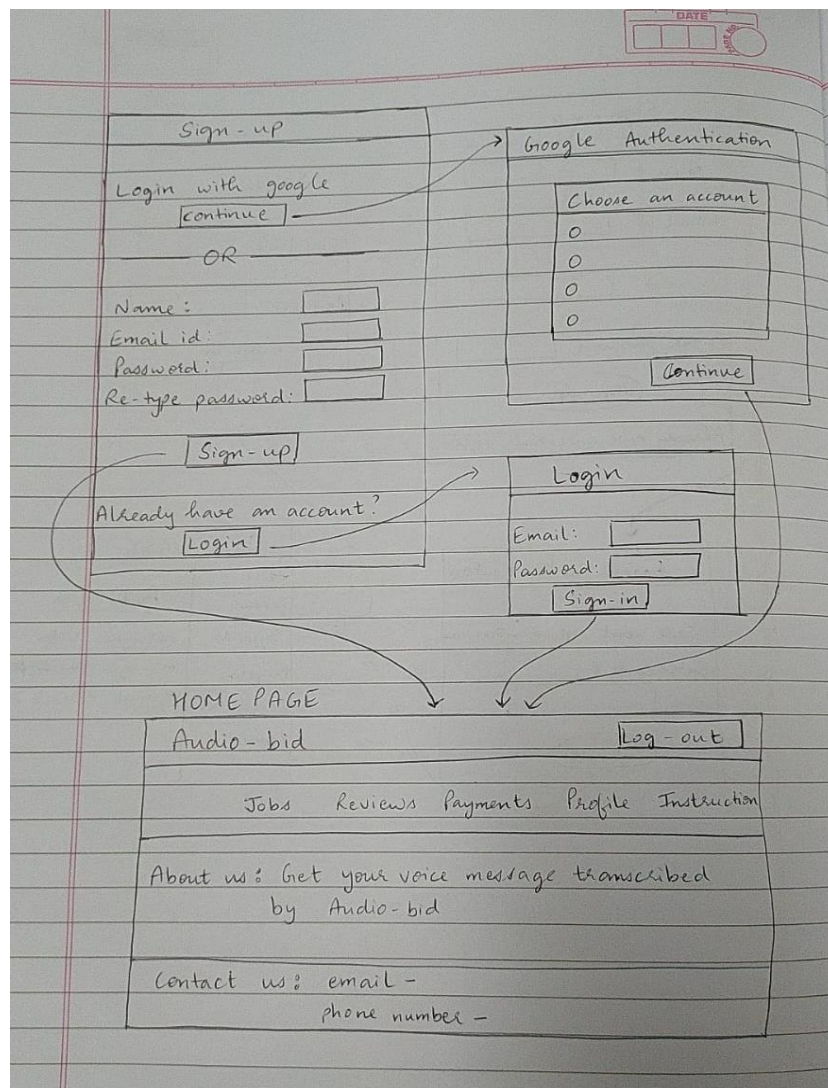 DATE
PAGE NO.
Sign-up
Login with google
continue
OR
Name:
Email id:
Password:
Re-type password:
Sign-up
Already have an account?
Login
Google Authentication
Choose an account
O
O
O
O
Continue
Login
Email:
Password:
Sign-in
HOME PAGE
Audio-bid Log-out
Jobs Reviews Payments Profile Instruction
About us: Get your voice message transcribed
by Audio-bid
Contact us: email -
phone number -